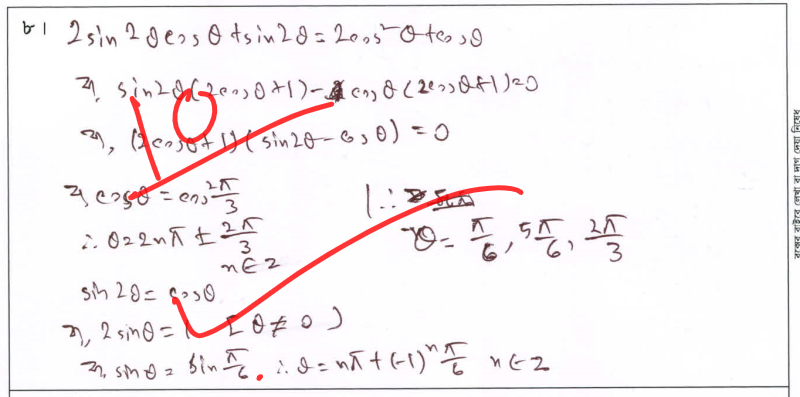 ৮। 2sin2θcosθ+sin2θ=2cos²θ+cosθ
বা, sin2θ(2cosθ+1)-cosθ(2cosθ+1)=0
বা, (2cosθ+1)(sin2θ-cosθ)=0
বা, cosθ=cos2π/3
∴ θ=2nπ±2π/3
n∈Z
sin2θ=cosθ
বা, 2sinθ=1 [θ≠0)
বা, sinθ=sinπ/6. ∴ θ=nπ+(-1)ⁿπ/6 n∈Z
∴
θ=π/6, 5π/6, 2π/3
10
বক্সের বাইরে লেখা বা দাগ দেয়া নিষেধ